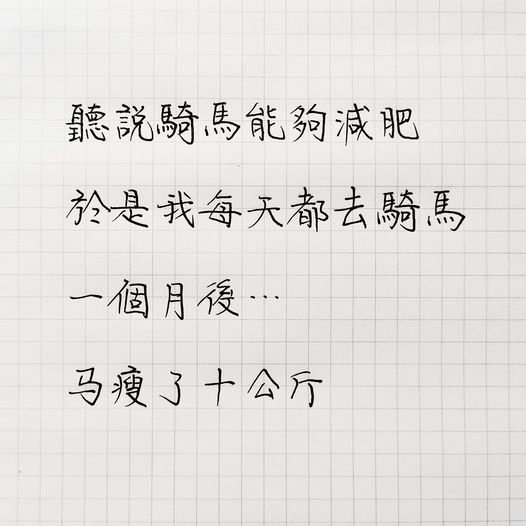 聽說騎馬能夠減肥
於是我每天都去騎馬
一個月後…
马瘦了十公斤